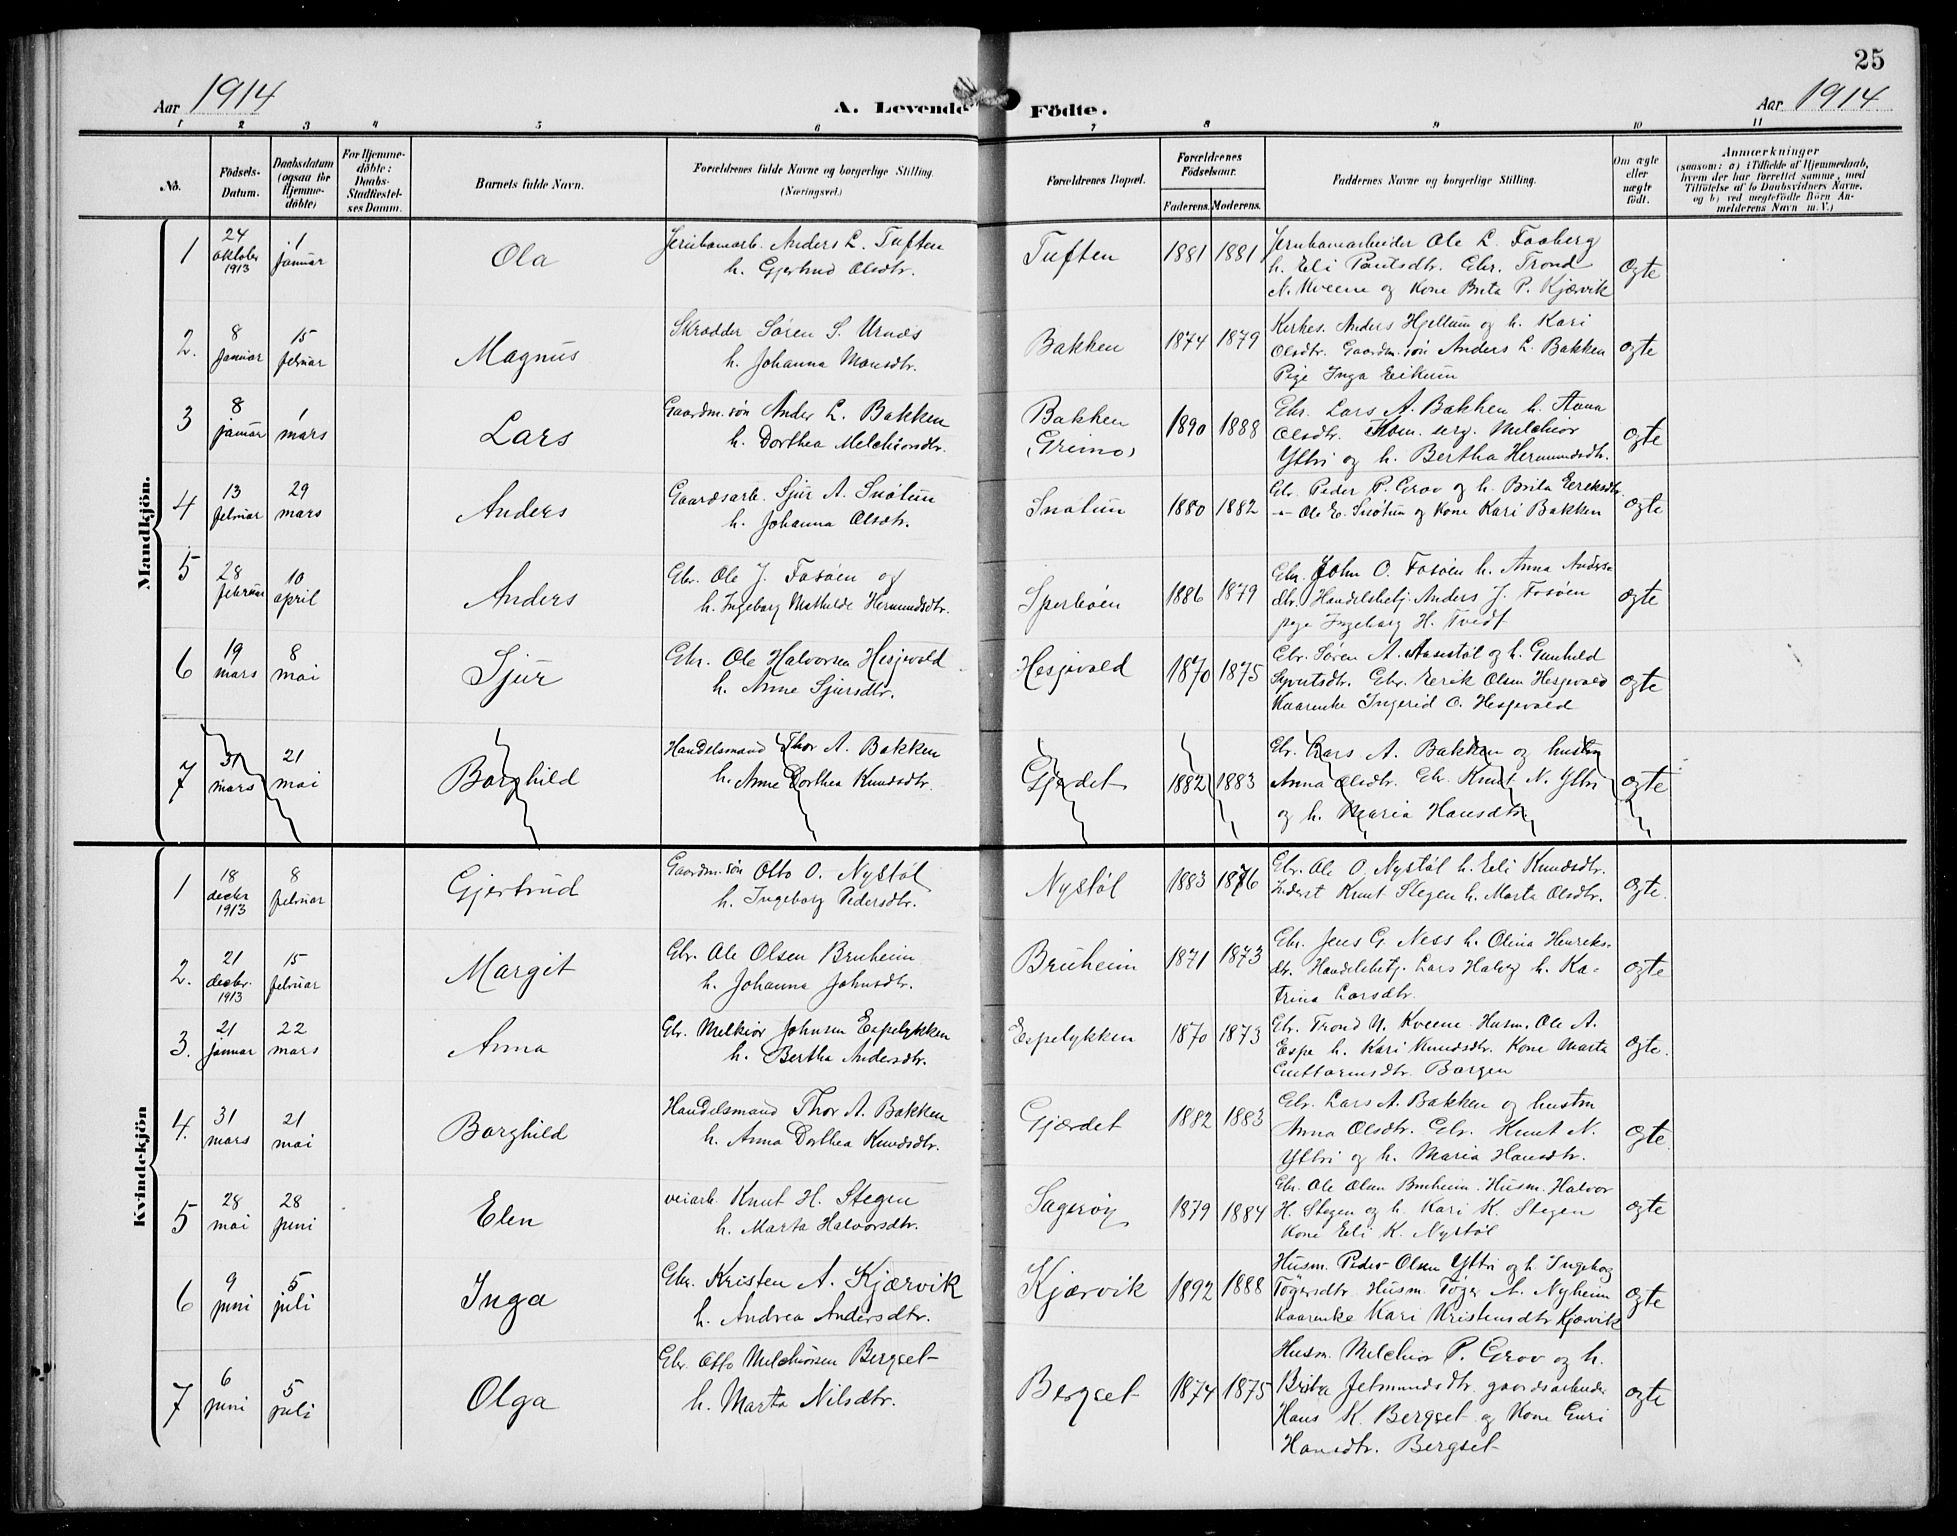 25
Aar 1914
A. Levende Födte.
Aar 1914
1 2 3 4 5 6 7 8 9 10 11
No.
Födsels-
Datum.
Daabsdatum
(ogsaa for
Hjemme-
döbte)
For Hjemme-
döbte:
Daabs-
Stadfæstel-
ses Datum.
Barnets fulde Navn.
Forældrenes fulde Navne og borgerlige Stilling.
(Næringsvei.)
Forældrenes Bopæl.
Forældrenes
Födselsaar.
Faderens. Moderens.
Faddernes Navne og borgerlige Stilling.
Om ægte
eller
uægte
födt.
Anmærkninger
(saasom: a) i Tilfælde af Hjemmedaab,
hvem der har forrettet samme, med
Tilföielse af to Daabsvidners Navne,
og b) ved uægtefödte Börn An-
melderens Navn m. V.)
Mandkjön.
1 24 oktober 1913 1 januar Ola
Jernbanearb. Anders L. Tuften
h. Gjertrud Olsdtr.
Tuften 1881 1881
Jernbanearbeider Ole L. Faaberg
h. Eli Paulsdtr. Gbr. Trond
N. Kveene og Kone Brita P. Kjærvik
ogte
2. 8 januar 15 februar Magnus
Skrædder Søren S. Urnæs
h. Johanna Monsdtr.
Bakken 1874 1879
Kirkes. Anders Hjeltum og h. Kari
Olsdtr. Gaardm. søn Anders L. Bakken
Pige Inga Eikum
ogte
3 8 januar 1 mars Lars
Gaardm. søn Ander L. Bakken
h. Dorthea Melchiorsdtr.
Bakken
(Grimo)
1890 1888
Gbr. Lars A. Bakken h. Anna
Olsdtr. Melchior
Yttri og h. Bertha Hermundsdtr.
ogte
4 13 februar 29 mars Anders
Gaardsarb. Sjur A. Snøtun
h. Johanna Olsdtr.
Snøtun 1880 1882
Gbr. Peder P. Grov og h. Brita Eeriksdtr.
— Ole E. Snøtun og Kone Kari Bakken
ogte
5 28 februar 10 april Anders
Gbr. Ole J. Fosøen og
h. Ingeborg Mathilde Hermundsdtr.
Sperbøen 1886 1879
Gbr. John O. Fosøen h. Anna Anders-
dtr. Handelsbetj. Anders J. Fosøen
pige Ingeborg H. Tvedt
ogte
6 19 mars 8 mai Sjur
Gbr. Ole Halvorsen Hesjevold
h. Anne Sjursdtr.
Hesjevold 1870 1875
Gbr. Søren A. Aasestøl og h. Gunhild
Syvertsdtr. Gbr. Eerek Olsen Hesjevold
Kaarenke Ingerid O. Hesjevold
ogte
7 31 mars 21 mai Borghild
Handelsmand Thor A. Bakken
h. Anne Dorthea Knudsdtr.
Gjerdet 1882 1883
Gbr. Lars A. Bakken og hustru
Anna Olsdtr. Gbr. Knut N. Yttri
og h. Maria Hansdtr.
ogte
Kvindekjön
1 18 decbr 1913 8 februar Gjertrud
Gaardm. søn Otto O. Nystøl
h. Ingeborg Pedersdtr.
Nystøl 1883 1876
Gbr. Ole O. Nystøl h. Eeli Knudsdtr.
Knut Stegen h. Marta Olsdtr.
ogte.
2. 21 decbr. 1913 15 februar Margit
Gbr. Ole Olsen Bruheim
h. Johanna Johnsdtr.
Bruheim 1871 1873
Gbr. Jens G. Ness h. Olina Henriks-
dtr. Handelsbetj. Lars h. Ka-
trina Larsdtr.
ogte
3. 21 januar 22 mars Anna
Gbr. Melkior Johnsen Espelykken
h. Bertha Andersdtr.
Eespelykken 1870 1873
Gbr. Trond N. Kveene. Husm. Ole A.
Eespe h. Kari Knudsdtr. Kone Marta
Guttormsdtr. Borgen
ogte.
4. 31 mars 21 mai Borghild
Handelsmand Thor A. Bakken
h. Anna Dorthea Knudsdtr.
Gjærdet 1882 1883
Gbr. Lars A. Bakken og hustru
Anna Olsdtr. Gbr. Knut N.
Yttri og h. Maria Hansdtr.
ogte
5 28 mai 28 juni Elen
veiarb. Knut H. Stegen
h. Marta Halvorsdtr.
Sagerøy 1879 1884
Gbr. Ole Olsen Bruheim. Husm. Halvor
H. Stegen og h. Kari K. Stegen
Kone Eeli K. Nystøl
ogte
6 9 juni 5 juli Inga
Gbr. Kristen A. Kjærvik
h. Andrea Andersdtr.
Kjærvik 1892 1888
Husm. Peder Olsen Yttri og h. Ingeborg
Tøgersdtr. Husm. Tøger A. Nyheim
Kaarenke Kari Kristensdtr Kjærvik
ogte
7 6 juni 5 juli Olga
Gbr. Otto Melchiorsen Bergset
h. Marta Nilsdtr.
Bergset 1874 1875
Husm. Melchior P. Grov og h.
Brita Jetmundsdtr. gaardsarbeider
Hans K. Bergset og Kone Guri
Hansdtr. Bergset
ogte